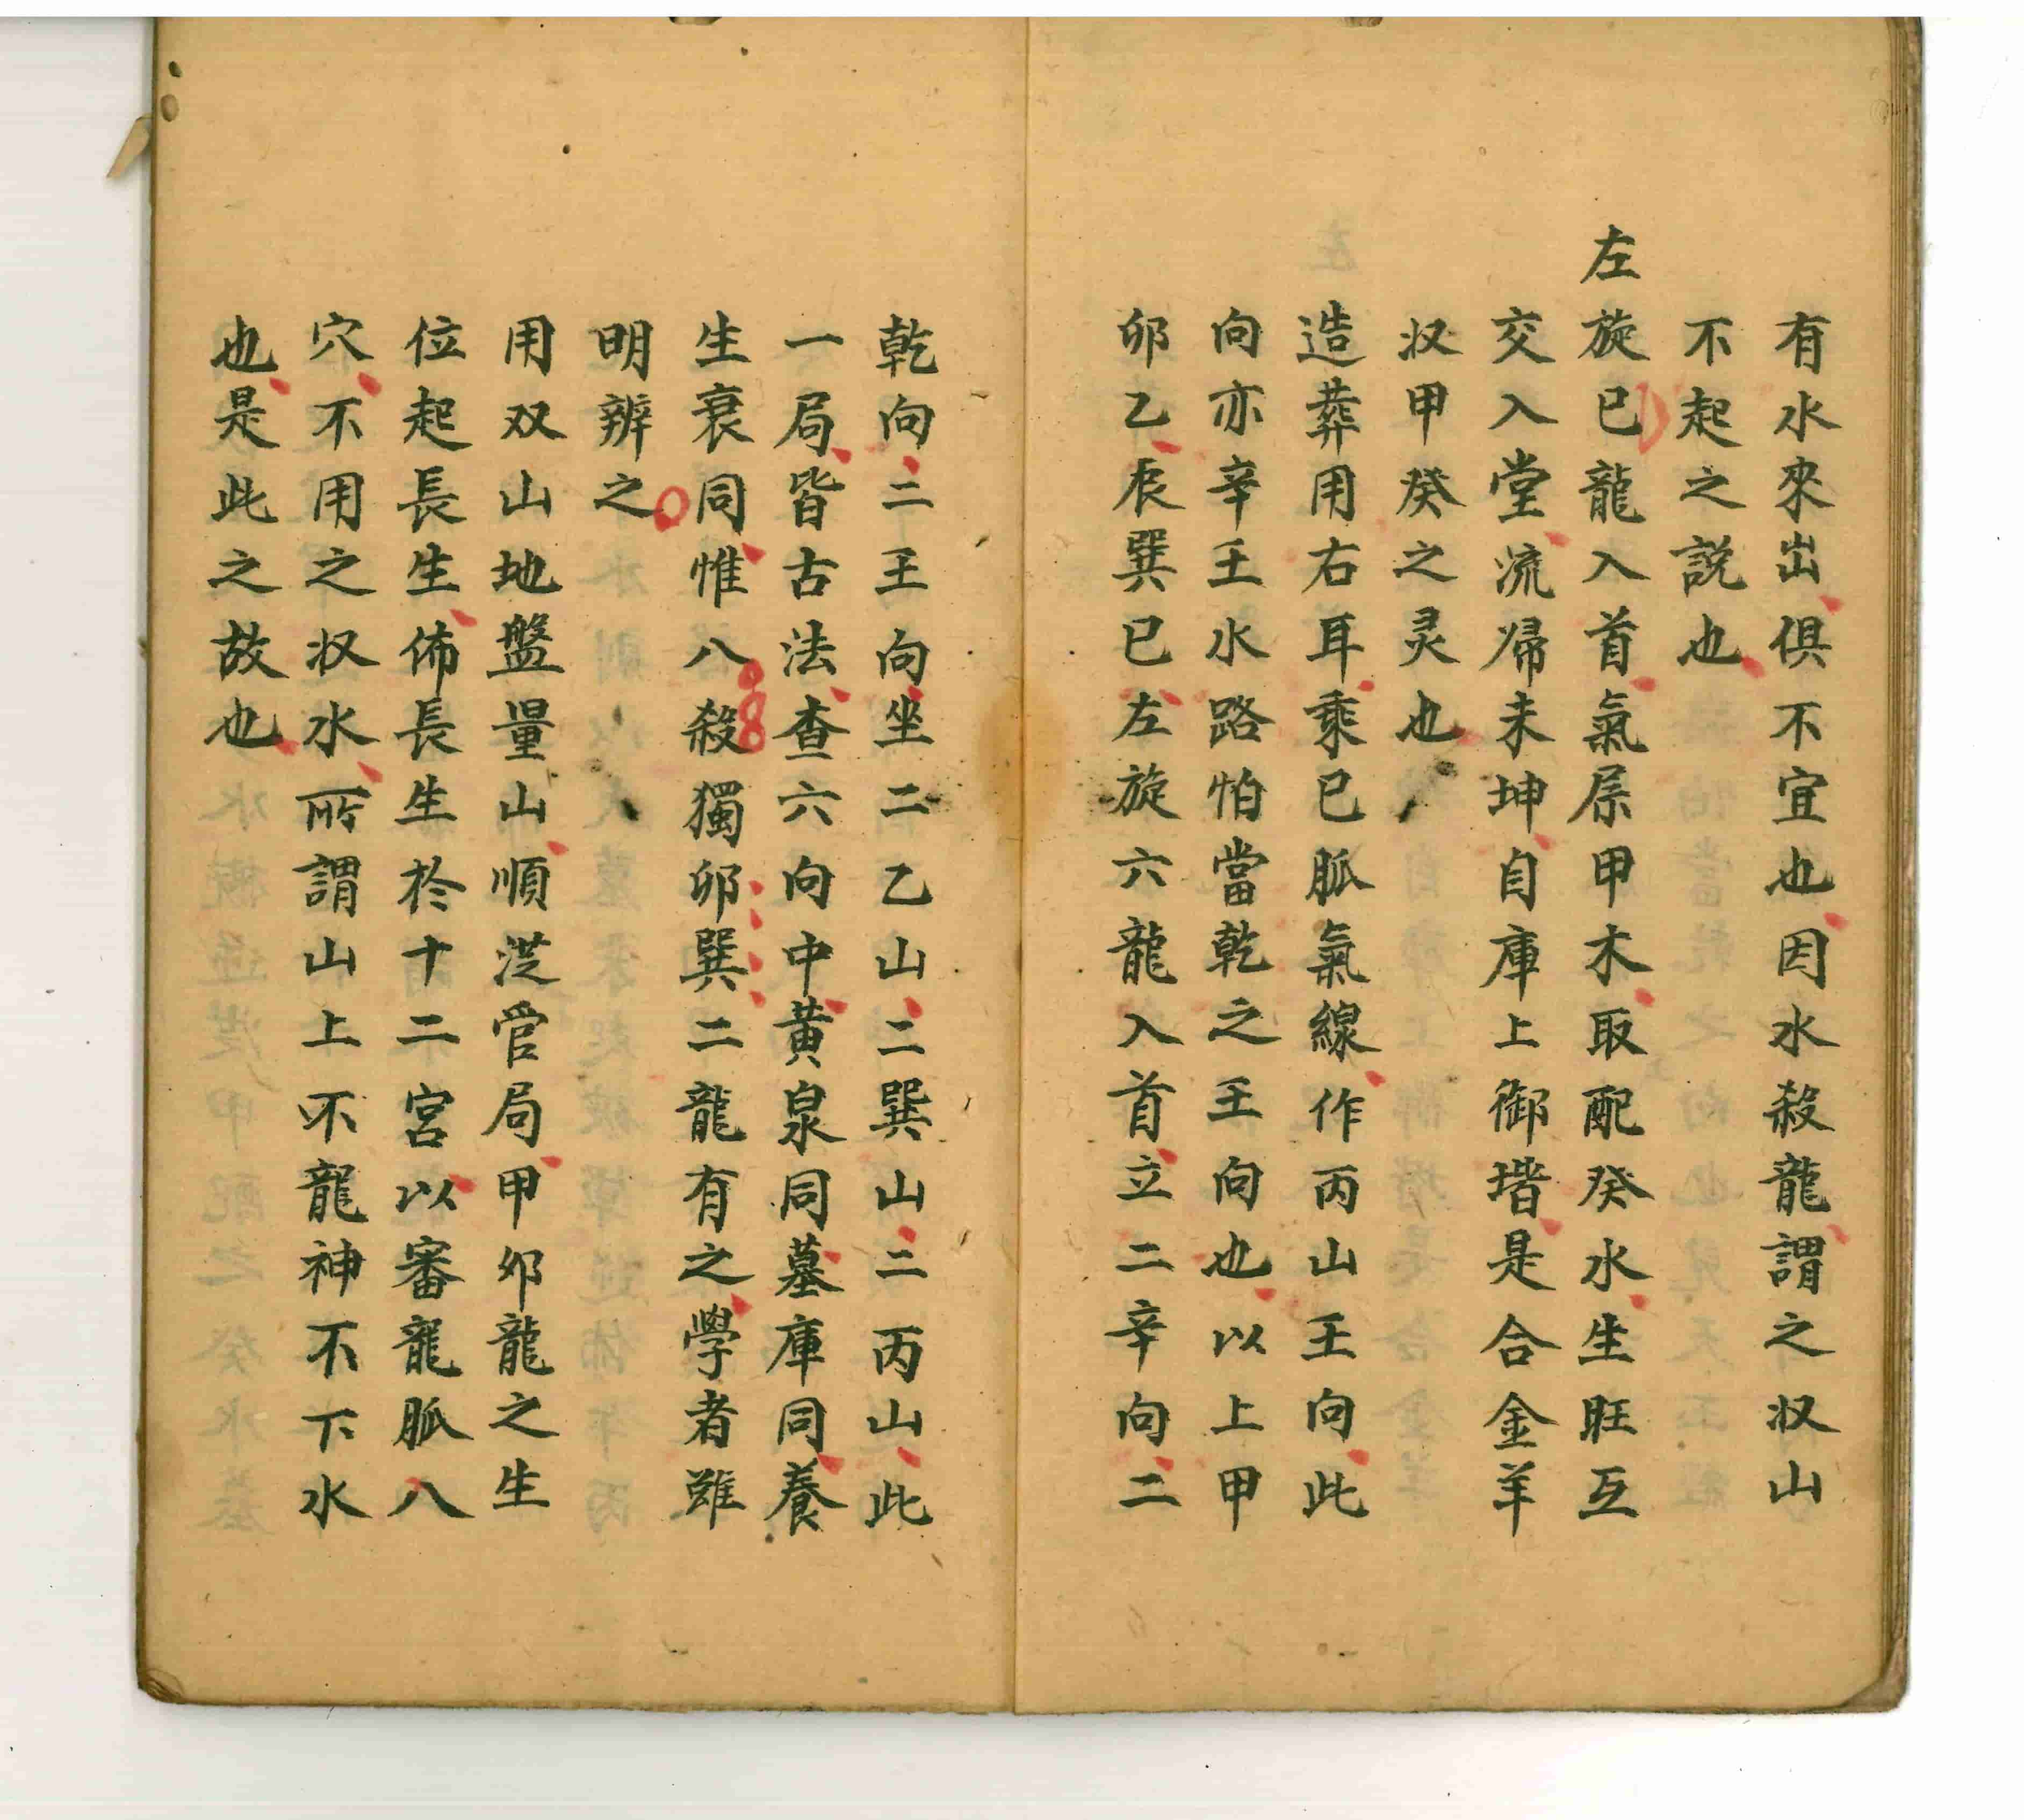 有水來出俱不宜也因水殺龍謂之収山
不起之説也
左旋巳龍入首氣属甲木取配癸水生旺互
交入堂流歸未坤自庫上御堦是合金羊
収甲癸之灵也
造葬用右耳乘巳脉氣線作丙山壬向此
向亦辛壬水路怕當乾之壬向也以上甲
卯乙辰巽巳左旋六龍入首立二辛向二
乾向二壬向坐二乙山二巽山二丙山此
一局皆古法查六向中黄泉同墓庫同養
生衰同惟八殺獨卯巽二龍有之學者雖
明辨之
用双山地盤量山順從官局甲卯龍之生
位起長生佈長生於十二宮以審龍脉八
穴不用之収水所謂山上不龍神不下水
也是此之故也